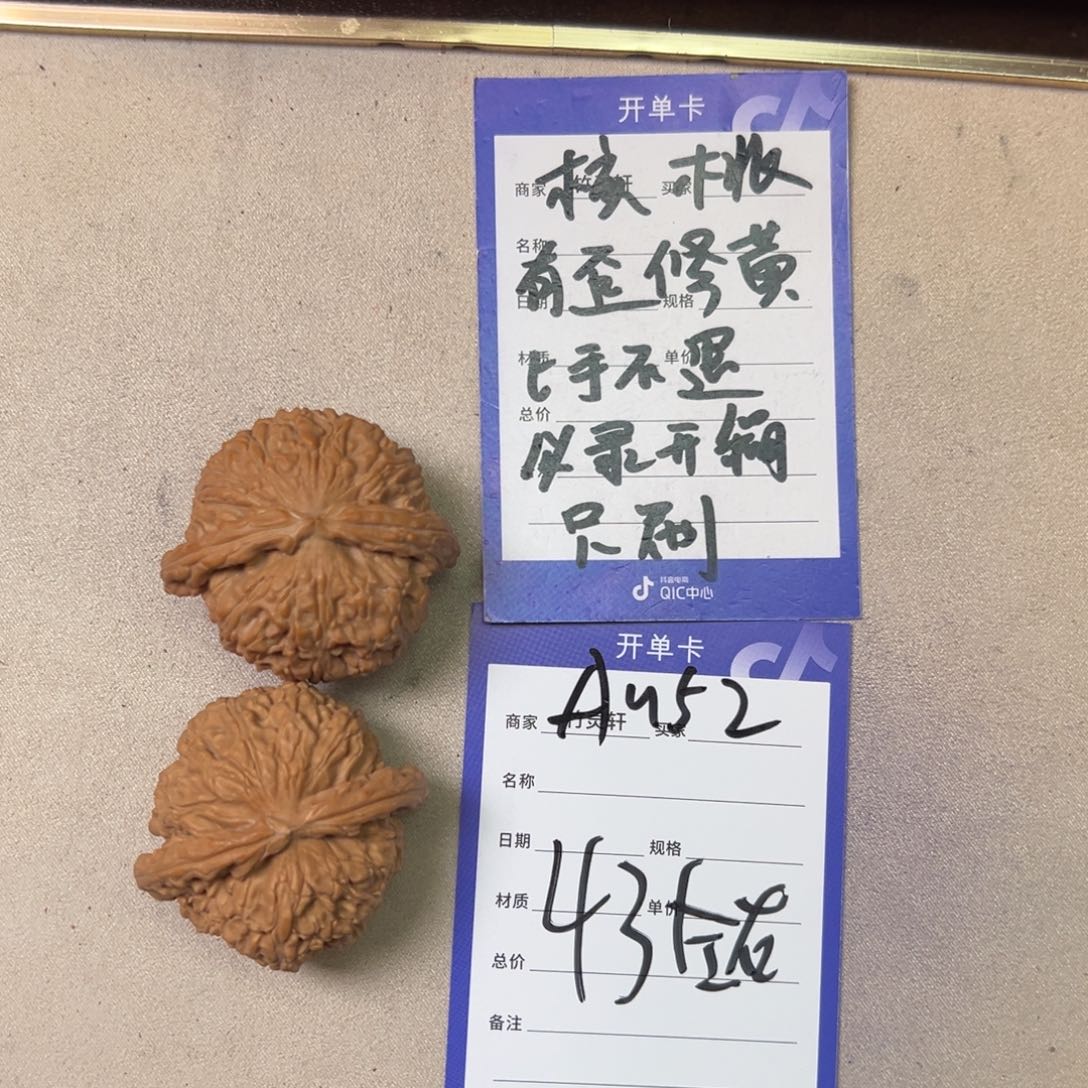 开单卡
核桃
商家 竹灵轩 买家
名称
有歪修黄
日期 规格
材质 单价
上手不退
总价
必录开箱
只刷
抖音电商
QIC中心
开单卡
A452
商家 竹灵轩 买家
名称
日期 规格
43左右
材质 单价
总价
备注